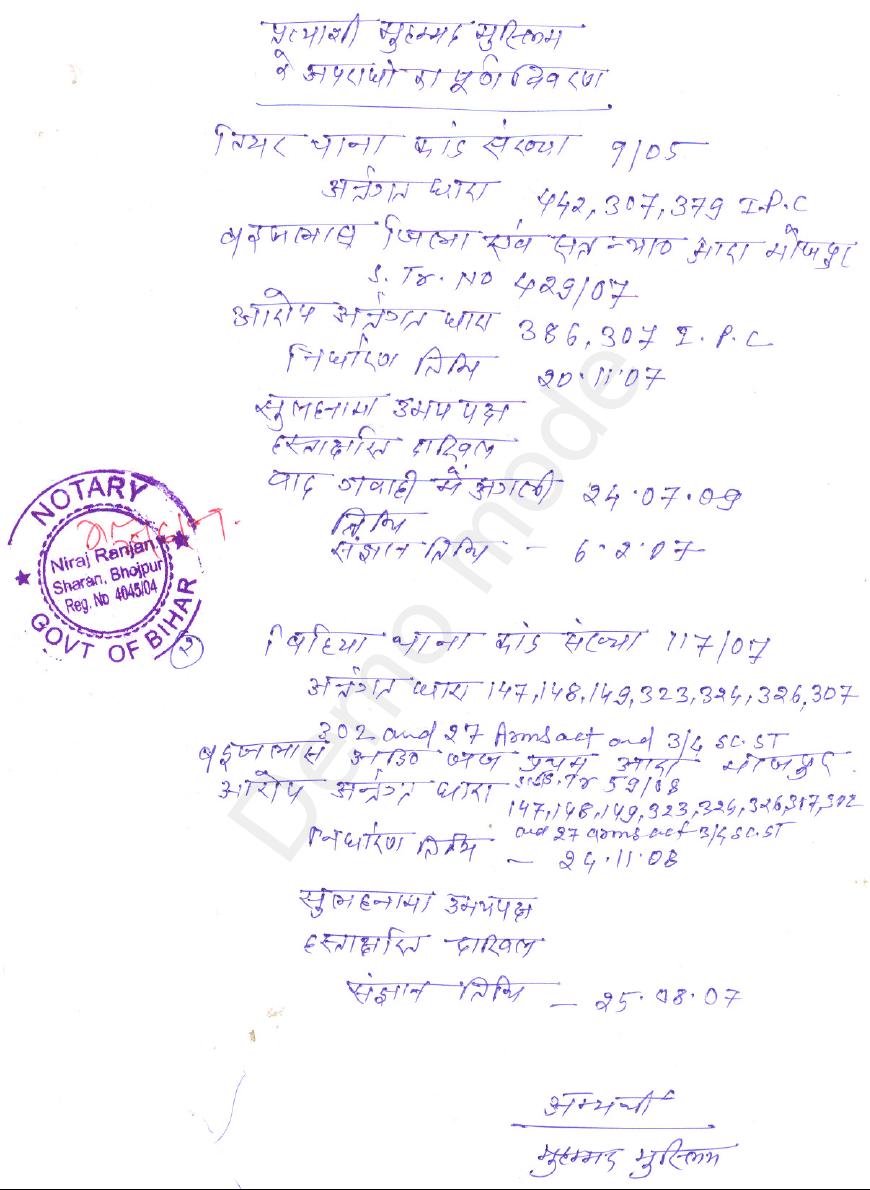 प्रत्याशी मुहम्मद मुस्लिम
के अपराधो का पूर्ण विवरण
तियर थाना कांड संख्या 9/05
अर्न्तगत धारा 442,307,379 I.P.C
बइजलास जिला एवं सत्र न्याय आरा भोजपुर
S. Tr. No 429/07
आरोप अर्न्तगत धारा 386,307 I.P.C
निर्धारण तिथि 20.11.07
सुलहनामा उभय पक्ष
हस्ताक्षरित दाखिल
वाद गवाही में अगली 24.07.09
तिथि
संज्ञान तिथि - 6.2.07
NOTARY
Niraj Ranjan
Sharan, Bhojpur
Reg. No 4045/04
GOVT OF BIHAR
(२) बिहिया थाना कांड संख्या 117/07
अर्न्तगत धारा 147,148,149,323,324,326,307
302 and 27 Arms act and 3/4 SC.ST
बइजलास जज प्रथम आरा भोजपुर
आरोप अर्न्तगत धारा Tr 59/08
147,148,149,323,324,326,307,302
and 27 arms act 3/4 SC.ST
निर्धारण तिथि - 24.11.08
सुलहनामा उभयपक्ष
हस्ताक्षरित दाखिल
संज्ञान तिथि - 25.08.07
अभ्यर्थी
मुहम्मद मुस्लिम
Demo mode